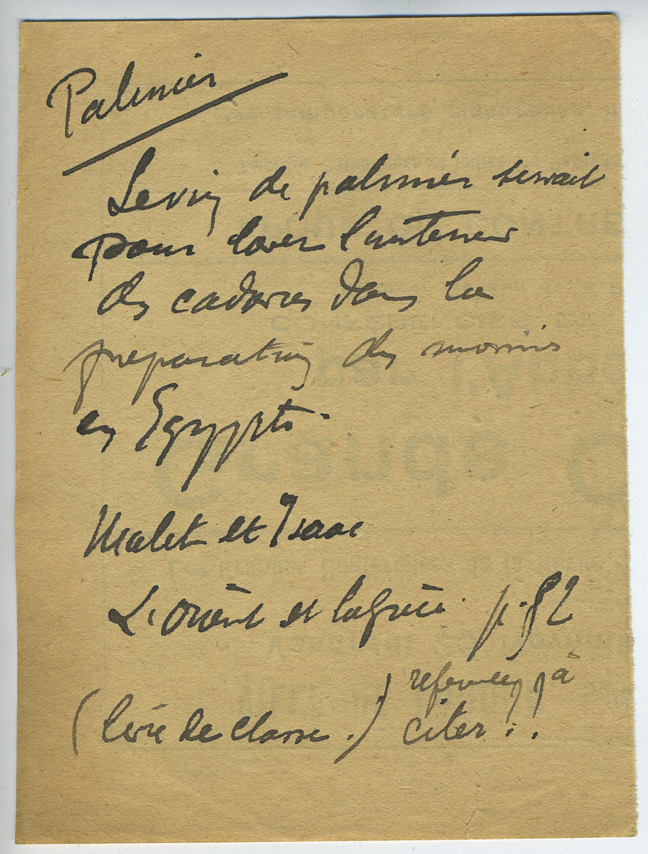 Palmier
Le vin de palmier servait
pour laver l'intérieur
des cadavres dans la
preparation des momies
en Egypte.
Malet et Isaac
L'Orient et la Grèce. p. 82
(livre de classe.) à
citer :.